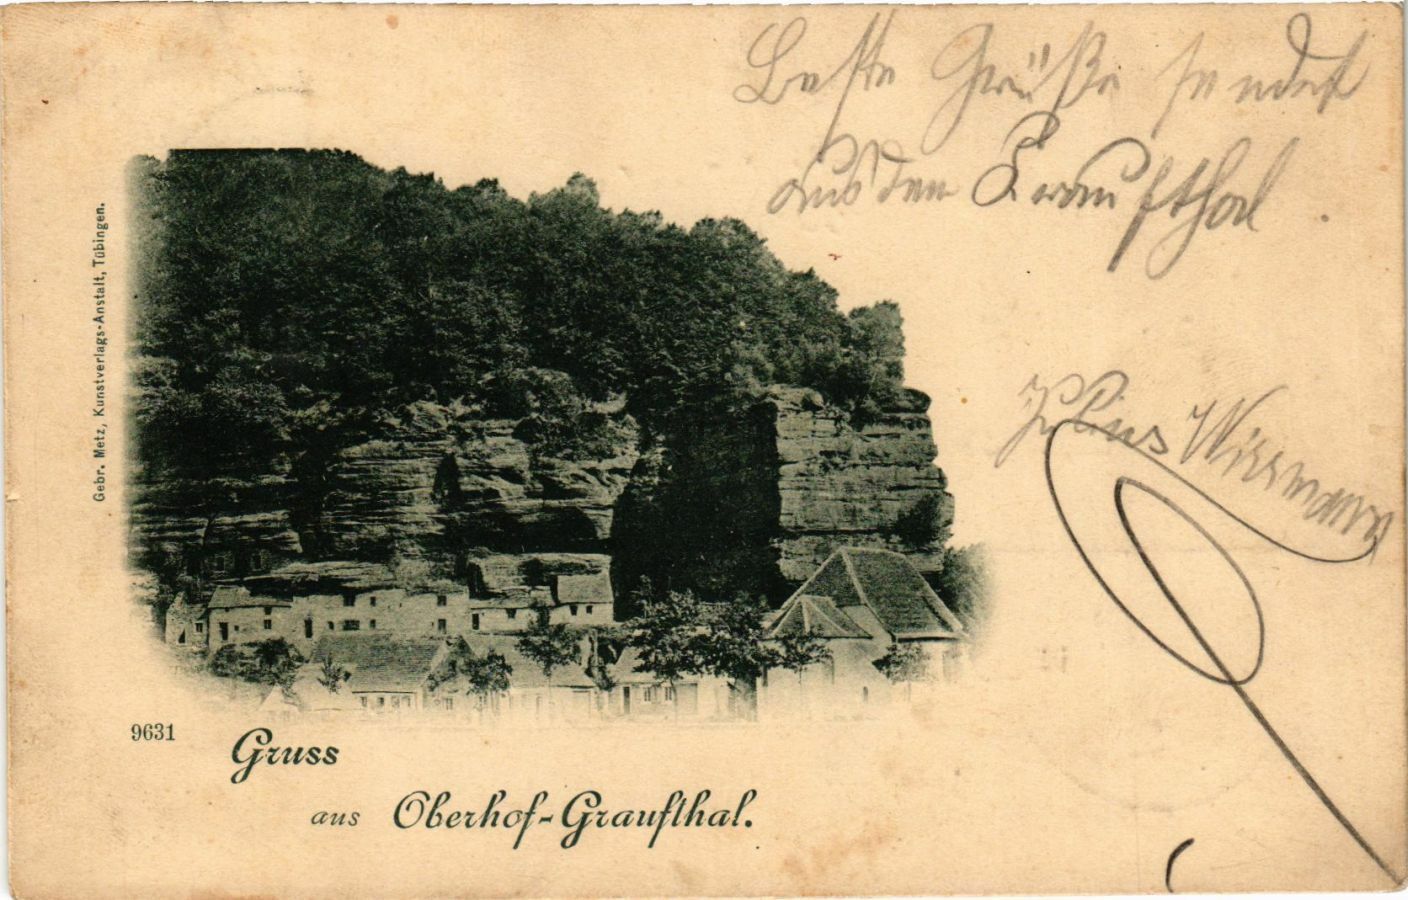 Beste Grüße sendet
aus dem Graufthal
Julius Wissmann
Gebr. Metz, Kunstverlags-Anstalt, Tübingen.
9631
Gruss
aus Oberhof-Graufthal.